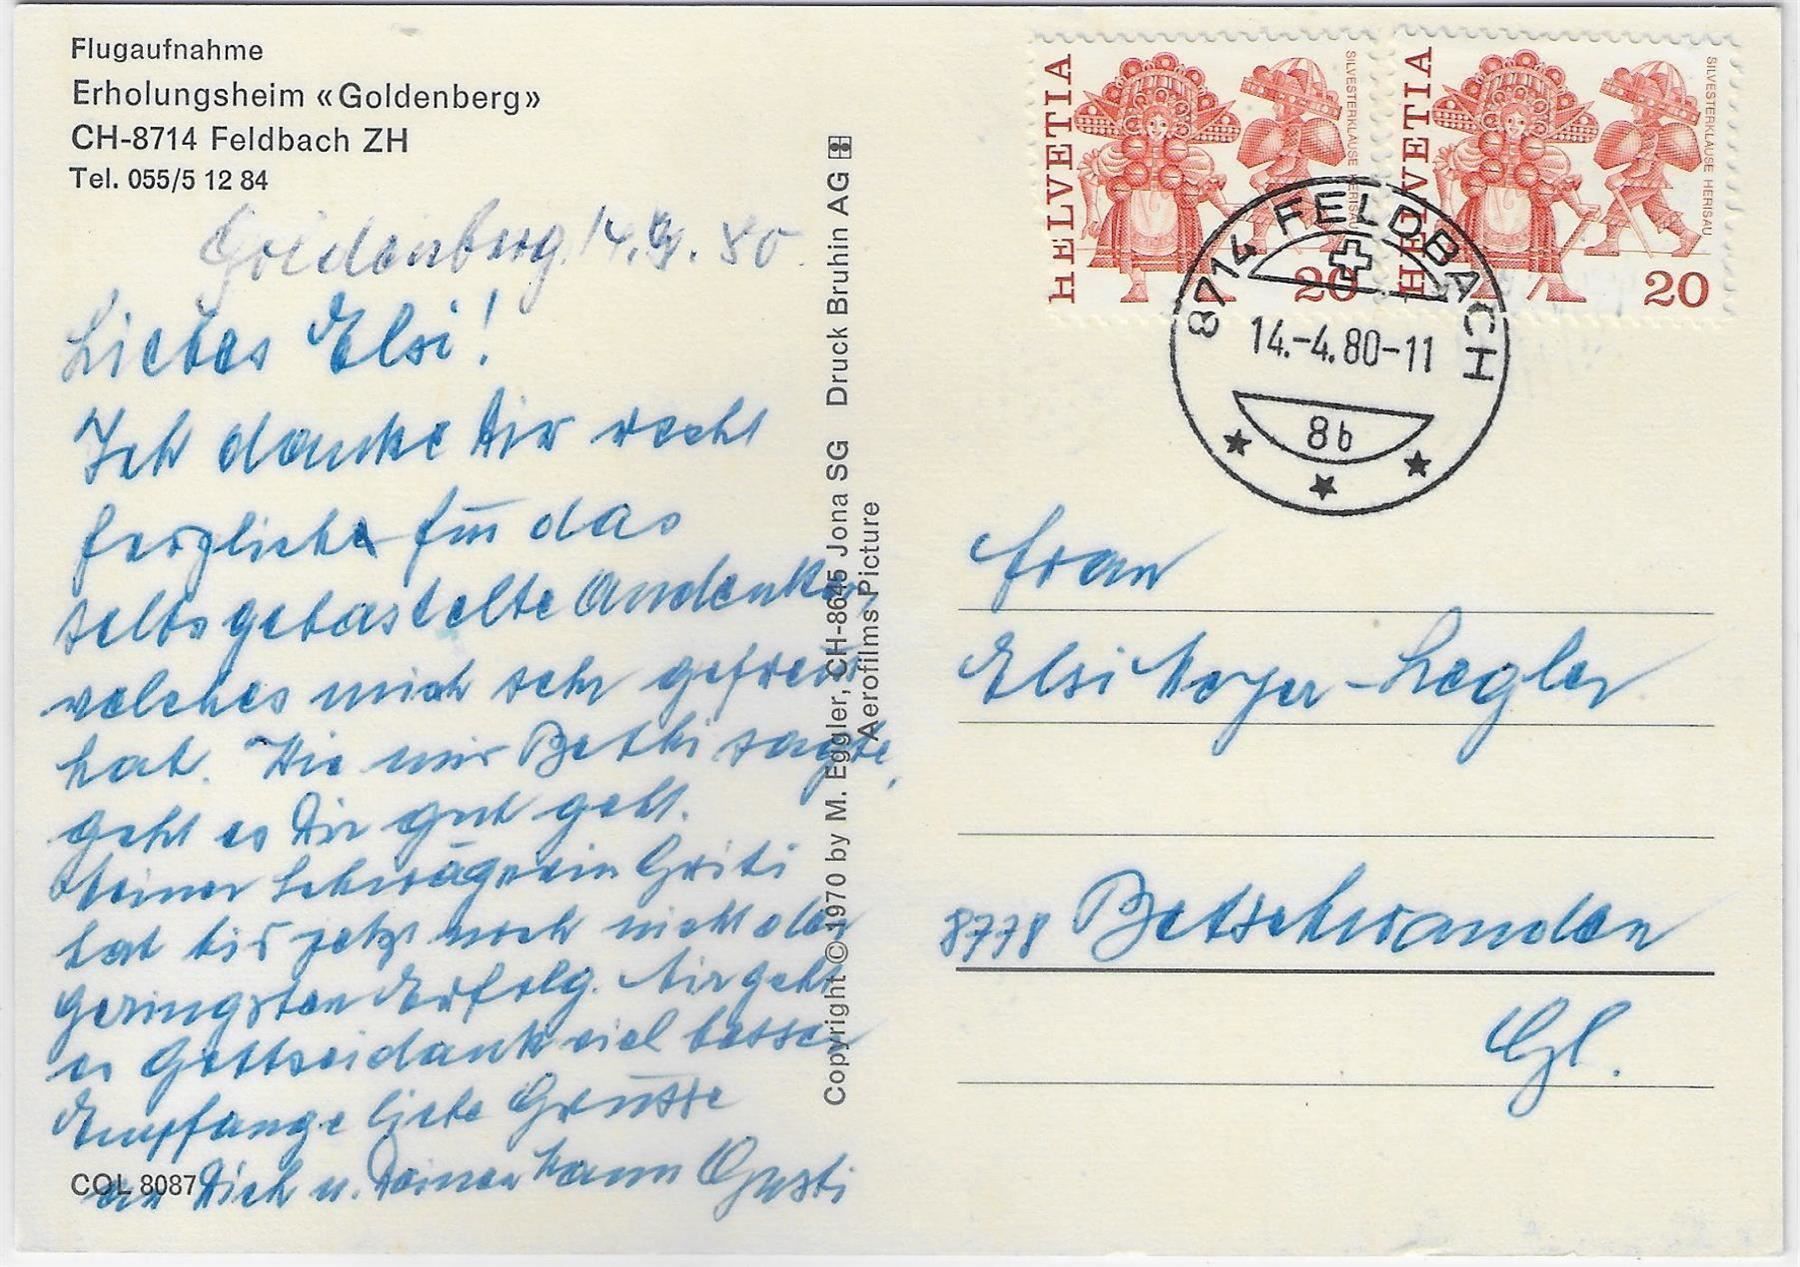 Flugaufnahme
Erholungsheim «Goldenberg»
CH-8714 Feldbach ZH
Tel. 055/5 12 84
Goldenberg, 14.4.80.
Liebes Elsi!
Ich danke Dir recht
herzlich für das
selbsgebastelte Andenken
welches mich sehr gefreut
hat. Wie mir Bethi sagte,
geht es Dir gut geht.
Meiner Schwägerin Griti
hat bis jetzt noch nicht den
geringsten Erfolg. Mir geht
es Gottseidank viel besser
Empfange liebe Grüsse
an Dich u. Deinen Mann Gusti
COL 8087
Copyright © 1970 by M. Eggler, CH-8645 Jona SG Druck Bruhin AG
Aerofilms Picture
HELVETIA
SILVESTERKLÄUSE HERISAU
20
HELVETIA
SILVESTERKLÄUSE HERISAU
20
8714 FELDBACH
14.-4.80-11
8b
Frau
Elsi Hoyer-Legler
8778 Betschwanden
Gl.